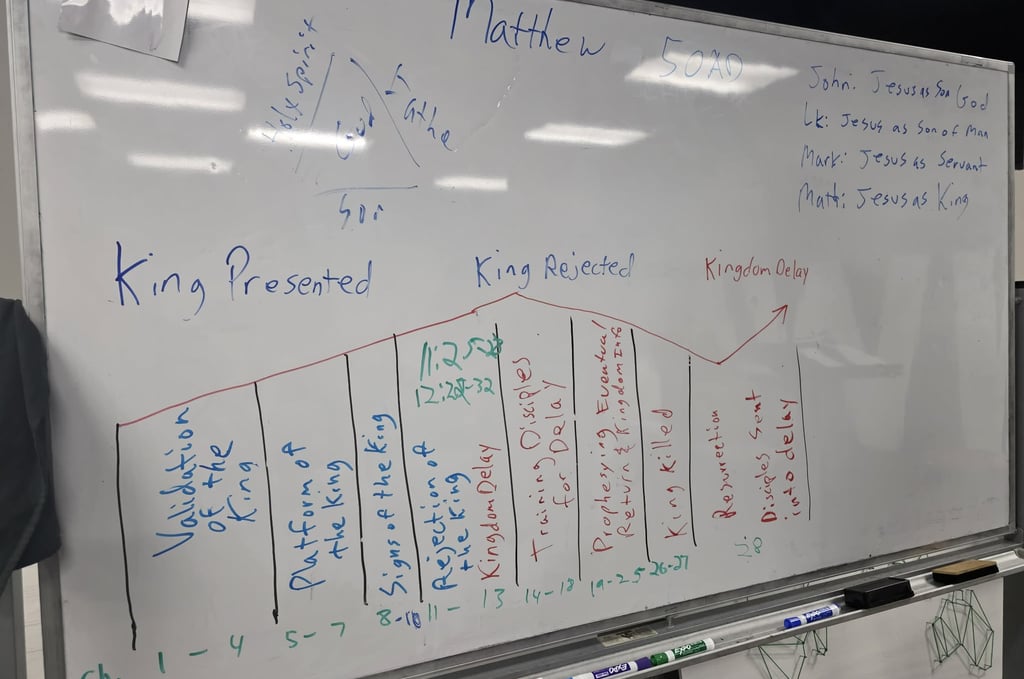 Matthew
50AD
Holy Spirit
God
Fathe
Son
John: Jesus as Son God
Lk: Jesus as Son of Man
Mark: Jesus as Servant
Matt: Jesus as King
King Presented
King Rejected
Kingdom Delay
Validation
of the
King
Platform of
the King
Signs of the King
11:25-28
12:28-32
Rejection of
the King
Kingdom Delay
Training Disciples
for Delay
Prophesying Eventual
Return & Kingdom Into
King Killed
Resurrection
Disciples Sent
into delay
Ch. 1 - 4
5 - 7
8-10
11 - 13
14-18
19-25
26-27
28
EXPO